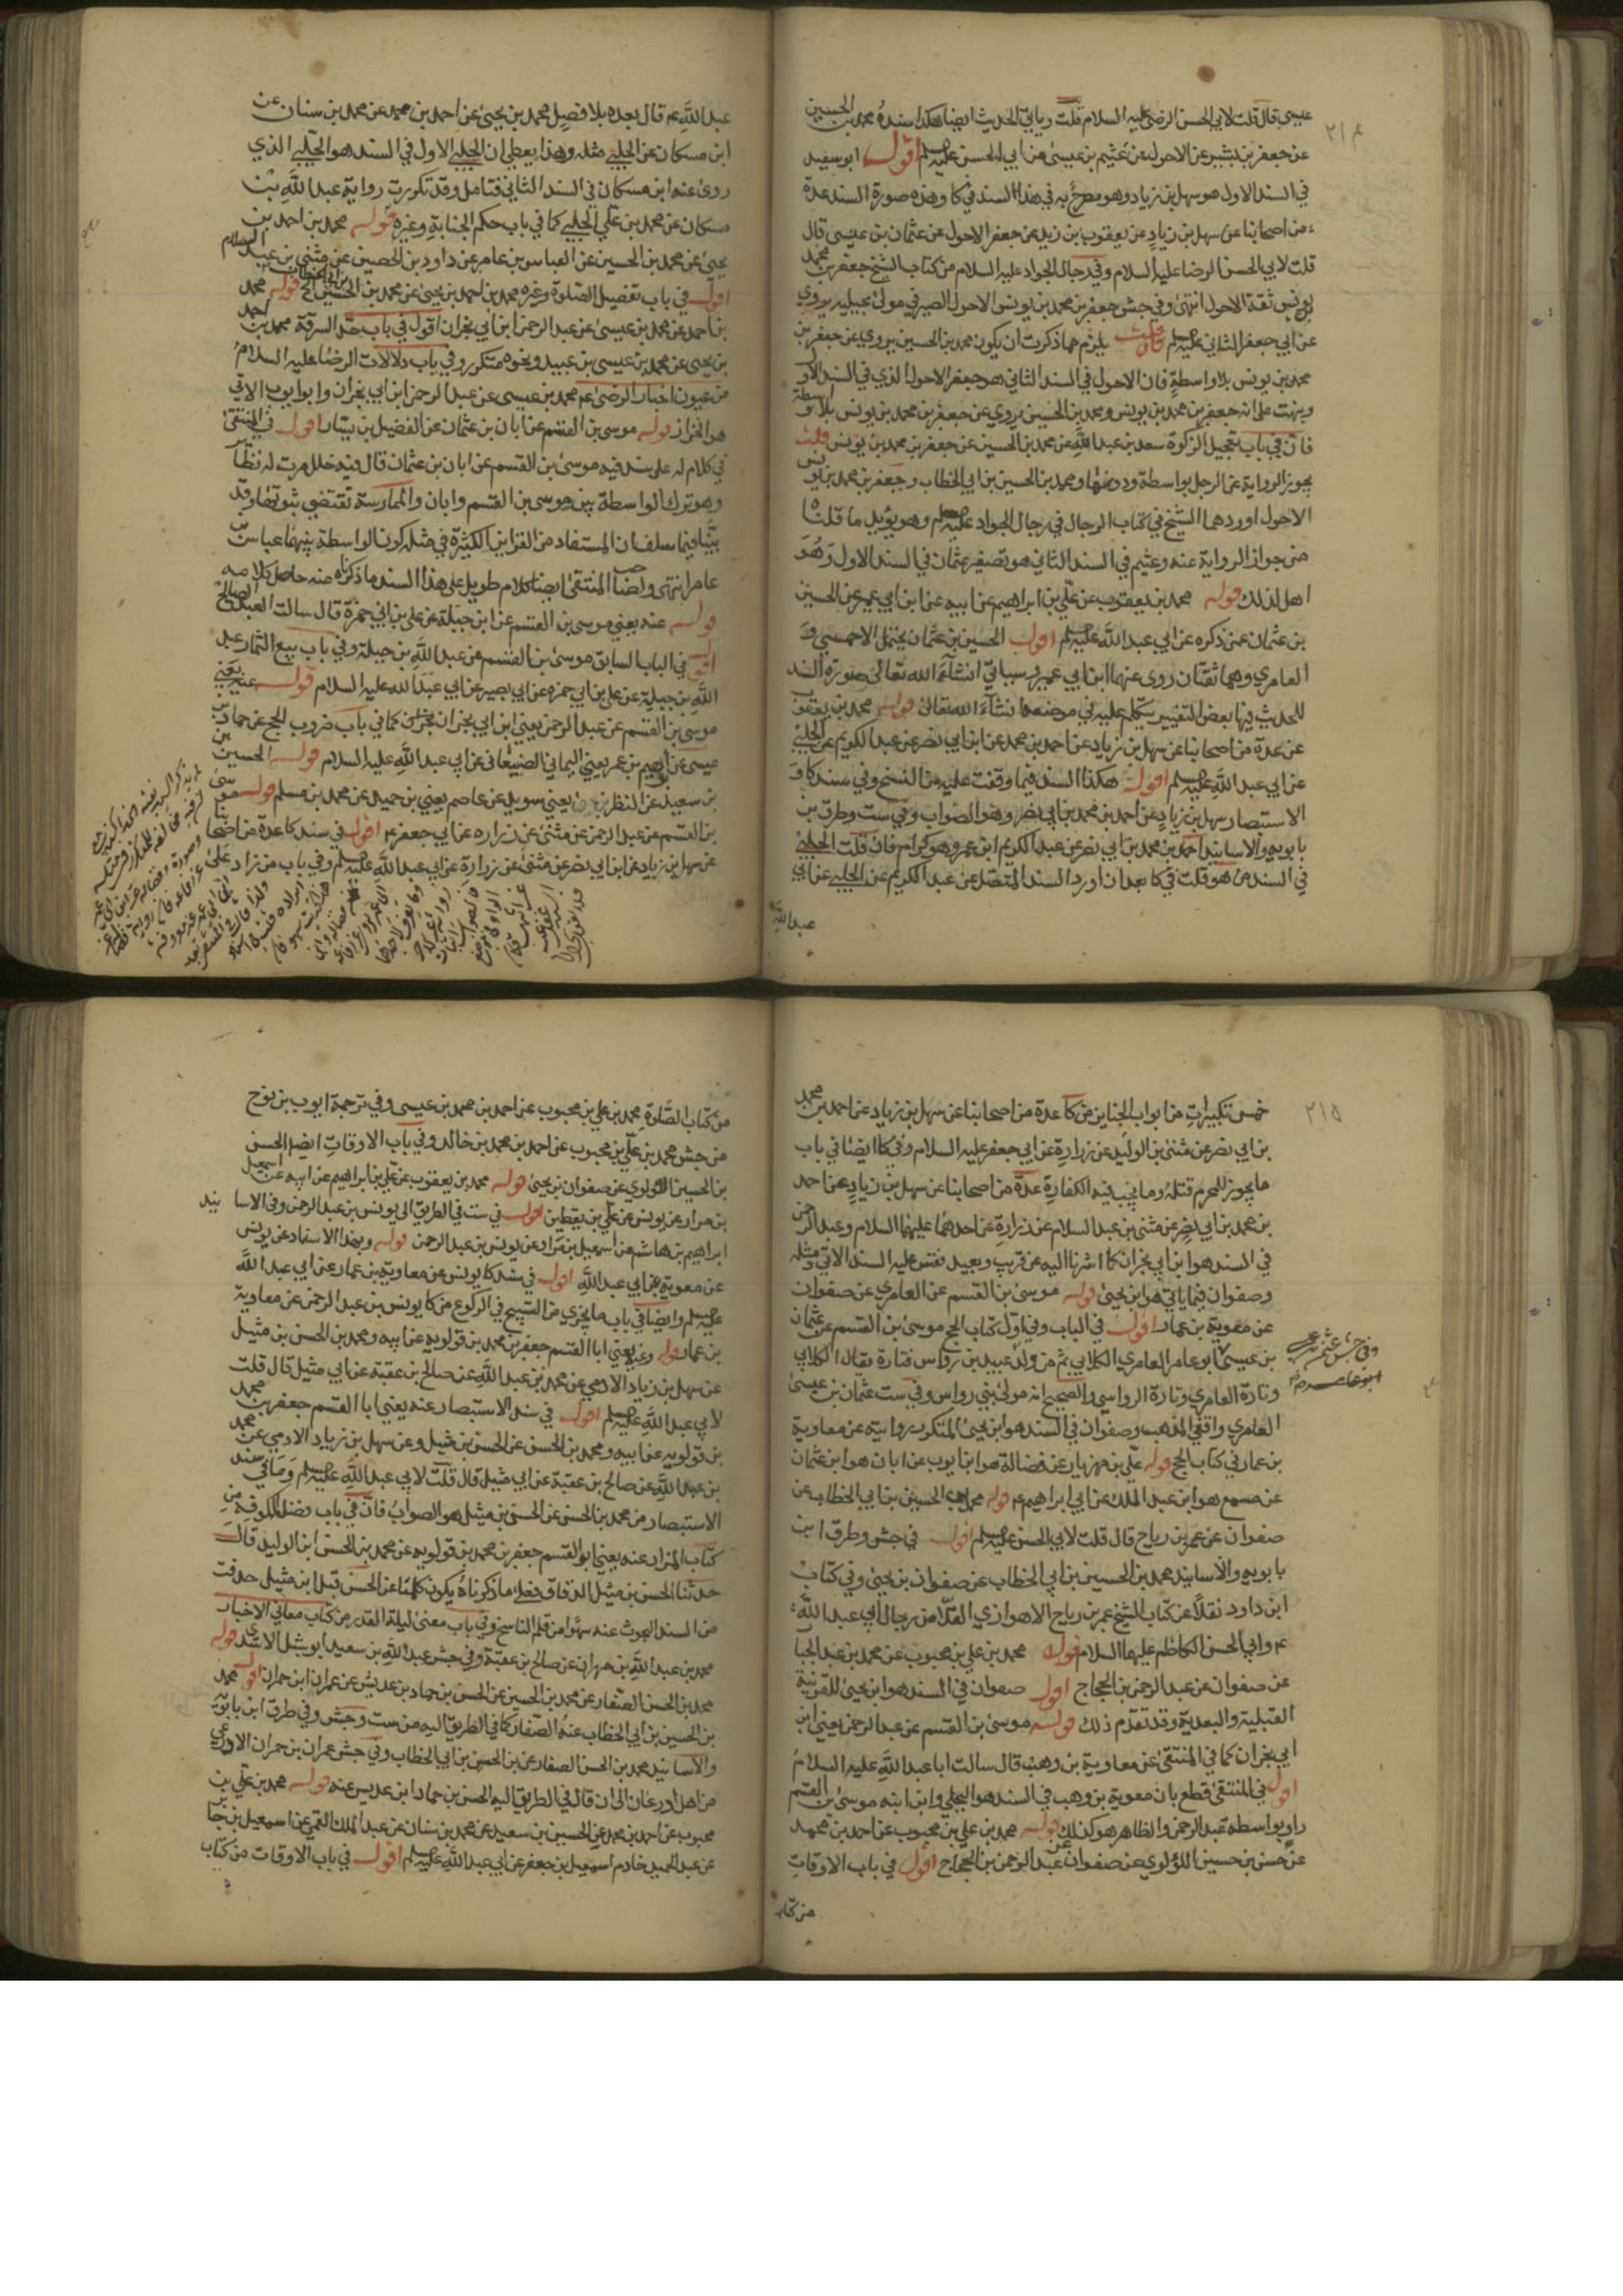 ٢١٤
عيسى قال قلت لابي الحسن الرضا عليه السلام قلت رباني الحديث ايضا هكذا سنده محمد بن الحسين
عن جعفر بن بشير عن الاحول عن عثيم بن عيسى عن ابي الحسن عليه السلام اقول ابو سعيد
في السند الاول هو سهل بن زياد وهو مصرح به في هذا السند في كا وهذه صورة السند عدة
من اصحابنا عن سهل بن زياد عن يعقوب بن زيد عن جعفر الاحول عن عثمان بن عيسى قال
قلت لابي الحسن الرضا عليه السلام وفي رجال الجواد عليه السلام من كتاب الشيخ جعفر بن محمد
يونس ثقة الاحول انتهى وفي جش جعفر بن محمد بن يونس الاحول الصيرفي مولى بجيلة يروي
عن ابي جعفر الثاني عليه السلم فان قلت يلزم مما ذكرت ان يكون محمد بن الحسين يروي عن جعفر بن
محمد بن يونس بلا واسطة فان الاحول في السند الثاني هو جعفر الاحول الذي في السند الاول
ونبهت على انه جعفر بن محمد بن يونس ومحمد بن الحسين يروي عن جعفر بن محمد بن يونس بلا واسطة
فان في باب تعجيل الزكوة سعد بن عبد الله عن محمد بن الحسين عن جعفر بن محمد بن يونس قلت
يجوز الرواية عن الرجل بواسطة ودونها ومحمد بن الحسين بن ابي الخطاب وجعفر بن محمد بن يونس
الاحول اوردهما الشيخ في كتاب الرجال في رجال الجواد عليه السلم وهو يؤيد ما قلناه
من جواز الرواية عنه وعثيم في السند الثاني هو تصغير عثمان في السند الاول وهو
اهل لذلك قوله محمد بن يعقوب عن علي بن ابراهيم عن ابيه عن ابن ابي عمير عن الحسين
بن عثمان عمن ذكره عن ابي عبد الله عليه السلم اقول الحسين بن عثمان يحتمل الاحمسي و
العامري وهما ثقتان روى عنهما ابن ابي عمير وسياتي انشاء الله تعالى صورة السند
للحديث فيها بعض التغيير سنتكلم عليه في موضعه انشاء الله تعالى قوله محمد بن يعقوب
عن عدة من اصحابنا عن سهل بن زياد عن احمد بن محمد عن ابن ابي نصر عن عبد الكريم عن الحلبي
عن ابي عبد الله عليه السلم اقول هكذا السند فيما وقفت عليه من النسخ وفي سند كا و
الاستبصار سهل بن زياد عن احمد بن محمد بن ابي نصر وهو الصواب وفي ست وطرق بن
بابويه والاسانيد احمد بن محمد بن ابي نصر عن عبد الكريم ابن عمرو وهو كرام فان قلت الحلبي
في السند من هو قلت في كا بعد ان اورد السند المتصل عن عبد الكريم عن الحلبي عن ابي
عبد الله
عبد الله عم قال بعده بلا فصل محمد بن يحيى عن احمد بن محمد عن محمد بن سنان عن
ابن مسكان عن الحلبي مثله وهذا يعطي ان الحلبي الاول في السند هو الحلبي الذي
روى عنه ابن مسكان في السند الثاني فتامل وقد تكررت رواية عبد الله بن
مسكان عن محمد بن علي الحلبي كما في باب حكم الجنابة وغيره قوله محمد بن احمد بن
يحيى عن محمد بن الحسين عن العباس بن عامر عن داود بن الحصين عن مثنى بن عبد السلام
اقول في باب تفصيل الصلوة وغيره محمد بن احمد بن يحيى عن محمد بن الحسين بن ابي الخطاب الخ قوله محمد
بن احمد عن محمد بن عيسى عن عبد الرحمن ابن ابي نجران اقول في باب حد السرقة محمد بن احمد
بن يحيى عن محمد بن عيسى بن عبيد ونحوه متكرر وفي باب دلالات الرضا عليه السلام
من عيون اخبار الرضى عم محمد بن عيسى عن عبد الرحمن ابن ابي نجران وابو ايوب الاتي
هو الخراز قوله موسى بن القسم عن ابان بن عثمان عن الفضيل بن يسار اقول في المنتقى
في كلام له على سند فيه موسى بن القسم عن ابان بن عثمان قال فيه خلل مرت له نظائر
وهو ترك الواسطة بين موسى بن القسم وابان والممارسة تقتضي ثبوتها وقد
بينا فيما سلف ان المستفاد من القراين الكثيرة في مثله كون الواسطة بينهما عباس بن
عامر انتهى ولصاحب المنتقى ايضا كلام طويل على هذا السند ما ذكرناه منه حاصل كلامه
قوله عنه يعني موسى بن القسم عن ابن جبلة عن علي بن ابي حمزة قال سالت العبد الصالح
اقول في الباب السابق موسى بن القسم عن عبد الله بن جبلة وفي باب بيع الثمار عبد
الله بن جبلة عن علي بن ابي حمزه عن ابي بصير عن ابي عبد الله عليه السلام قوله عنه يعني
موسى بن القسم عن عبد الرحمن يعني ابن ابي نجران كما في باب ضروب الحج عن حماد بن
عيسى عن ابرهيم بن عمر يعني اليماني الصنعاني عن ابي عبد الله عليه السلام قوله الحسين بن
بن سعيد عن النظر بن يعني سويد عن عاصم يعني بن حميد عن محمد بن مسلم قوله موسى
بن القسم عن عبد الرحمن عن مثنى عن زراره عن ابي جعفر عم اقول في سند كا عدة من اصحابنا
عن سهل بن زياد عن ابن ابي نصر عن مثنى عن زرارة عن ابي عبد الله عليه السلم وفي باب من زاد على
٢١٥
خمس تكبيرات من ابواب الجنايز من كا عدة من اصحابنا عن سهل بن زياد عن احمد بن محمد
بن ابي نصر عن مثنى بن الوليد عن زرارة عن ابي جعفر عليه السلام وفي كا ايضا في باب
ما يجوز للمحرم قتله وما يجب فيه الكفارة عدة من اصحابنا عن سهل بن زياد عن احمد
بن محمد بن ابي نصر عن مثنى بن عبد السلام عن زرارة عن احدهما عليهما السلام وعبد الرحمن
في السند هو ابن ابي نجران كما اشرنا اليه عن قريب وبعيد فقس عليه السند الاتي ومثله
وصفوان فيما ياتي هو ابن يحيى قوله موسى بن القسم عن العامري عن صفوان
عن معوية بن عمار اقول في الباب وفي اول كتاب الحج موسى بن القسم عن عثمان
بن عيسى ابو عامر العامري الكلابي ثم من ولد عبيد بن رواس فتارة يقال الكلابي
وتارة العامري وتارة الرواسي والصحيح انه مولى بني رواس وفي ست عثمان بن عيسى
العامري واقفي المذهب وصفوان في السند هو ابن يحيى المتكرر روايته عن معاوية
بن عمار في كتاب الحج قوله علي بن مهزيار عن فضالة هو ابن ايوب عن ابان هو ابن عثمان
عن مسمع هو ابن عبد الملك عن ابي ابراهيم عم قوله محمد بن الحسين بن ابي الخطاب عن
صفوان عن عمر بن رياح قال قلت لابي الحسن عليه السلم اقول في جش وطرق ابن
بابويه والاسانيد محمد بن الحسين بن ابي الخطاب عن صفوان بن يحيى وفي كتاب
ابن داود نقلا عن كتاب الشيخ عمر بن رياح الاهوازي القلا من رجال ابي عبد الله
عم وابي الحسن الكاظم عليهما السلام قوله محمد بن علي بن محبوب عن محمد بن عبد الجبار
عن صفوان عن عبد الرحمن بن الحجاج اقول صفوان في السند هو ابن يحيى للقرينة
القبلية والبعدية وقد تقدم ذلك قوله موسى بن القسم عن عبد الرحمن يعني ابن
ابي نجران كما في المنتقى عن معاوية بن وهب قال سالت ابا عبد الله عليه السلام
اقول في المنتقى قطع بان معوية بن وهب في السند هو البجلي وابن ابنه موسى بن القسم
راو بواسطة عبد الرحمن والظاهر هو كذلك قوله محمد بن علي بن محبوب عن احمد بن محمد
عن حسن بن حسين اللؤلوي عن صفوان عن عبد الرحمن بن الحجاج اقول في باب الاوقات
من كتاب
من كتاب الصلوة محمد بن علي بن محبوب عن احمد بن محمد بن عيسى وفي ترجمة ايوب بن نوح
من جش محمد بن علي بن محبوب عن احمد بن محمد بن خالد وفي باب الاوقات ايضا الحسن
بن الحسين اللؤلوي عن صفوان بن يحيى قوله محمد بن يعقوب عن علي بن ابراهيم عن ابيه عن اسمعيل
بن مرار عن يونس عن علي بن يقطين اقول في ست في الطريق الى يونس بن عبد الرحمن وفي الاسانيد
ابراهيم بن هاشم عن اسمعيل بن مرار عن يونس بن عبد الرحمن قوله وبهذا الاسناد عن يونس
عن معوية عن ابي عبد الله اقول في سند كا يونس عن معاوية بن عمار عن ابي عبد الله
عليه السلم وايضا في باب ما يجزي من التسبيح في الركوع من كا يونس بن عبد الرحمن عن معاوية
بن عمار قوله وعنه يعني ابا القسم جعفر بن محمد بن قولويه عن ابيه ومحمد بن الحسن بن مثيل
عن سهل بن زياد الادمي عن محمد بن عبد الله عن صالح بن عقبة عن ابي مثيل قال قلت
لابي عبد الله عليه السلم اقول في سند الاستبصار عنه يعني ابا القسم جعفر بن محمد
بن قولويه عن ابيه ومحمد بن الحسن عن الحسن بن مثيل وعن سهل بن زياد الادمي عن محمد
بن عبد الله عن صالح بن عقبة عن ابي مثيل قال قلت لابي عبد الله عليه السلم وما في سند
الاستبصار من محمد بن الحسن عن الحسن بن مثيل هو الصواب فان في باب فضل الكوفة من
كتاب المزار عنه يعني ابو القسم جعفر بن محمد بن قولويه عن محمد بن الحسن ابن الوليد قال
حدثنا الحسن بن مثيل الدقاق فعلى ما ذكرناه يكون كلمتا عن الحسن قبل ابن مثيل حذفت
من السند المبحوث عنه سهوا من قلم الناسخ وفي باب معنى ليلة القدر من كتاب معاني الاخبار
محمد بن عبد الله بن مهران عن صالح بن عقبة وفي جش عبد الله بن سعيد ابو شبل الاسدي قوله
محمد بن الحسن الصفار عن محمد بن الحسين عن الحسن بن حماد بن عديس عن عمران ابن حمران اقول محمد
بن الحسين بن ابي الخطاب عنه الصفار كما في الطريق اليه من ست وجش وفي طرق ابن بابويه
والاسانيد محمد بن الحسن الصفار عن بن الحسين بن ابي الخطاب وفي جش عمران بن حمران الاذرعي
من اهل اذرعات الى ان قال في الطريق اليه الحسن بن حماد ابن عديس عنه قوله محمد بن علي بن
محبوب عن احمد بن محمد عن الحسين بن سعيد عن محمد بن سنان عن عبد الملك القمي عن اسمعيل بن جابر
عن عبد الحميد خادم اسمعيل بن جعفر عن ابي عبد الله عليه السلم اقول في باب الاوقات من كتاب